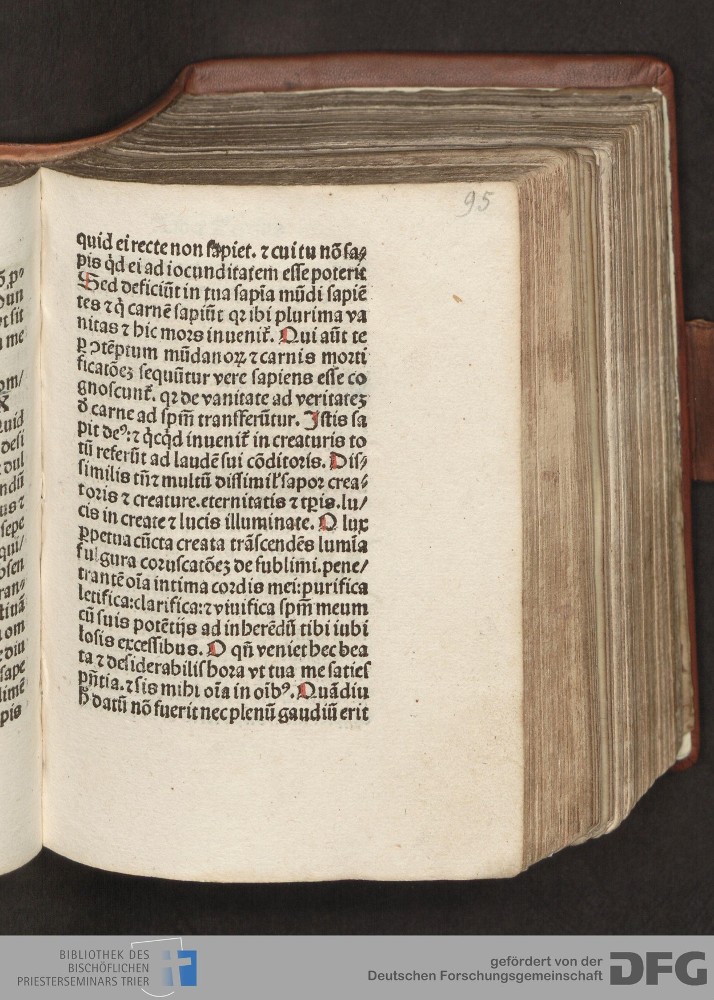 95
quid ei recte non sapiet. ⁊ cui tu nō sa⸗
pis qd̕ ei ad iocunditatem esse poterit
Sed deficiūt in tua sapīa mūdi sapiē
tes ⁊ q̇ carnē sapiūt qꝛ ibi plurima va
nitas ⁊ hic mors inuenit᷑. Qui aūt te
ꝑ ꝯtēptum mūdanoꝝ ⁊ carnis morti
ficatōeꝫ sequūtur vere sapiens esse co
gnoscunt᷑. qꝛ de vanitate ad veritateꝫ
d̕ carne ad spm̄ transferūtur. Istis sa
pit deꝰ: ⁊ qͥcqͥd inuenit᷑ in creaturis to
tū referūt ad laudē sui cōditoris. Dis⸗
similis tn̄ ⁊ multū dissimil̕ sapor crea⸗
toris ⁊ creature. eternitatis ⁊ tp̄is. lu/
cis increate ⁊ lucis illuminate. O lux
ꝑpetua cūcta creata trāscendēs lumīa
fulgura coruscatōeꝫ de sublimi. pene/
trantē oīa intima cordis mei: purifica
letifica: clarifica: ⁊ viuifica spm̄ meum
cū suis potētijs ad inherēdū tibi iubi
losis excessibus. O qn̄ veniet hec bea
ta ⁊ desiderabilis hora vt tua me saties
pn̄tia. ⁊ sis mihi oīa in oībꝰ. Quādiu
h̕ datū nō fuerit nec plenū gaudiū erit
BIBLIOTHEK DES
BISCHÖFLICHEN
PRIESTERSEMINARS TRIER
gefördert von der
Deutschen Forschungsgemeinschaft
DFG